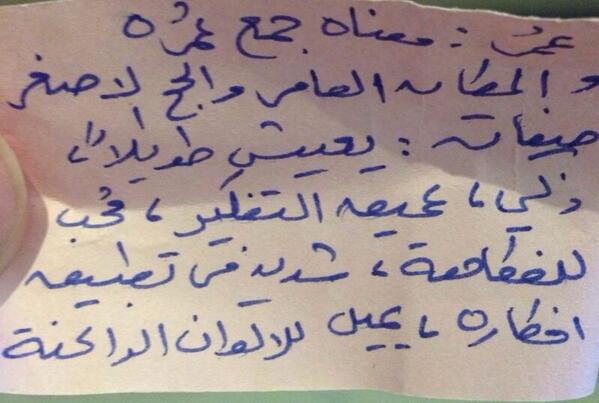 عمرُ : معناه جمع عمرُه
و المكان العامر والحج الاصغر
صفاته : يعيش طويلاً ،
ذكي ، عميق التفكير ، محُب
للفكاهة ، شديد في تطبيق
افكاره ، يميل للالوان الداكنة